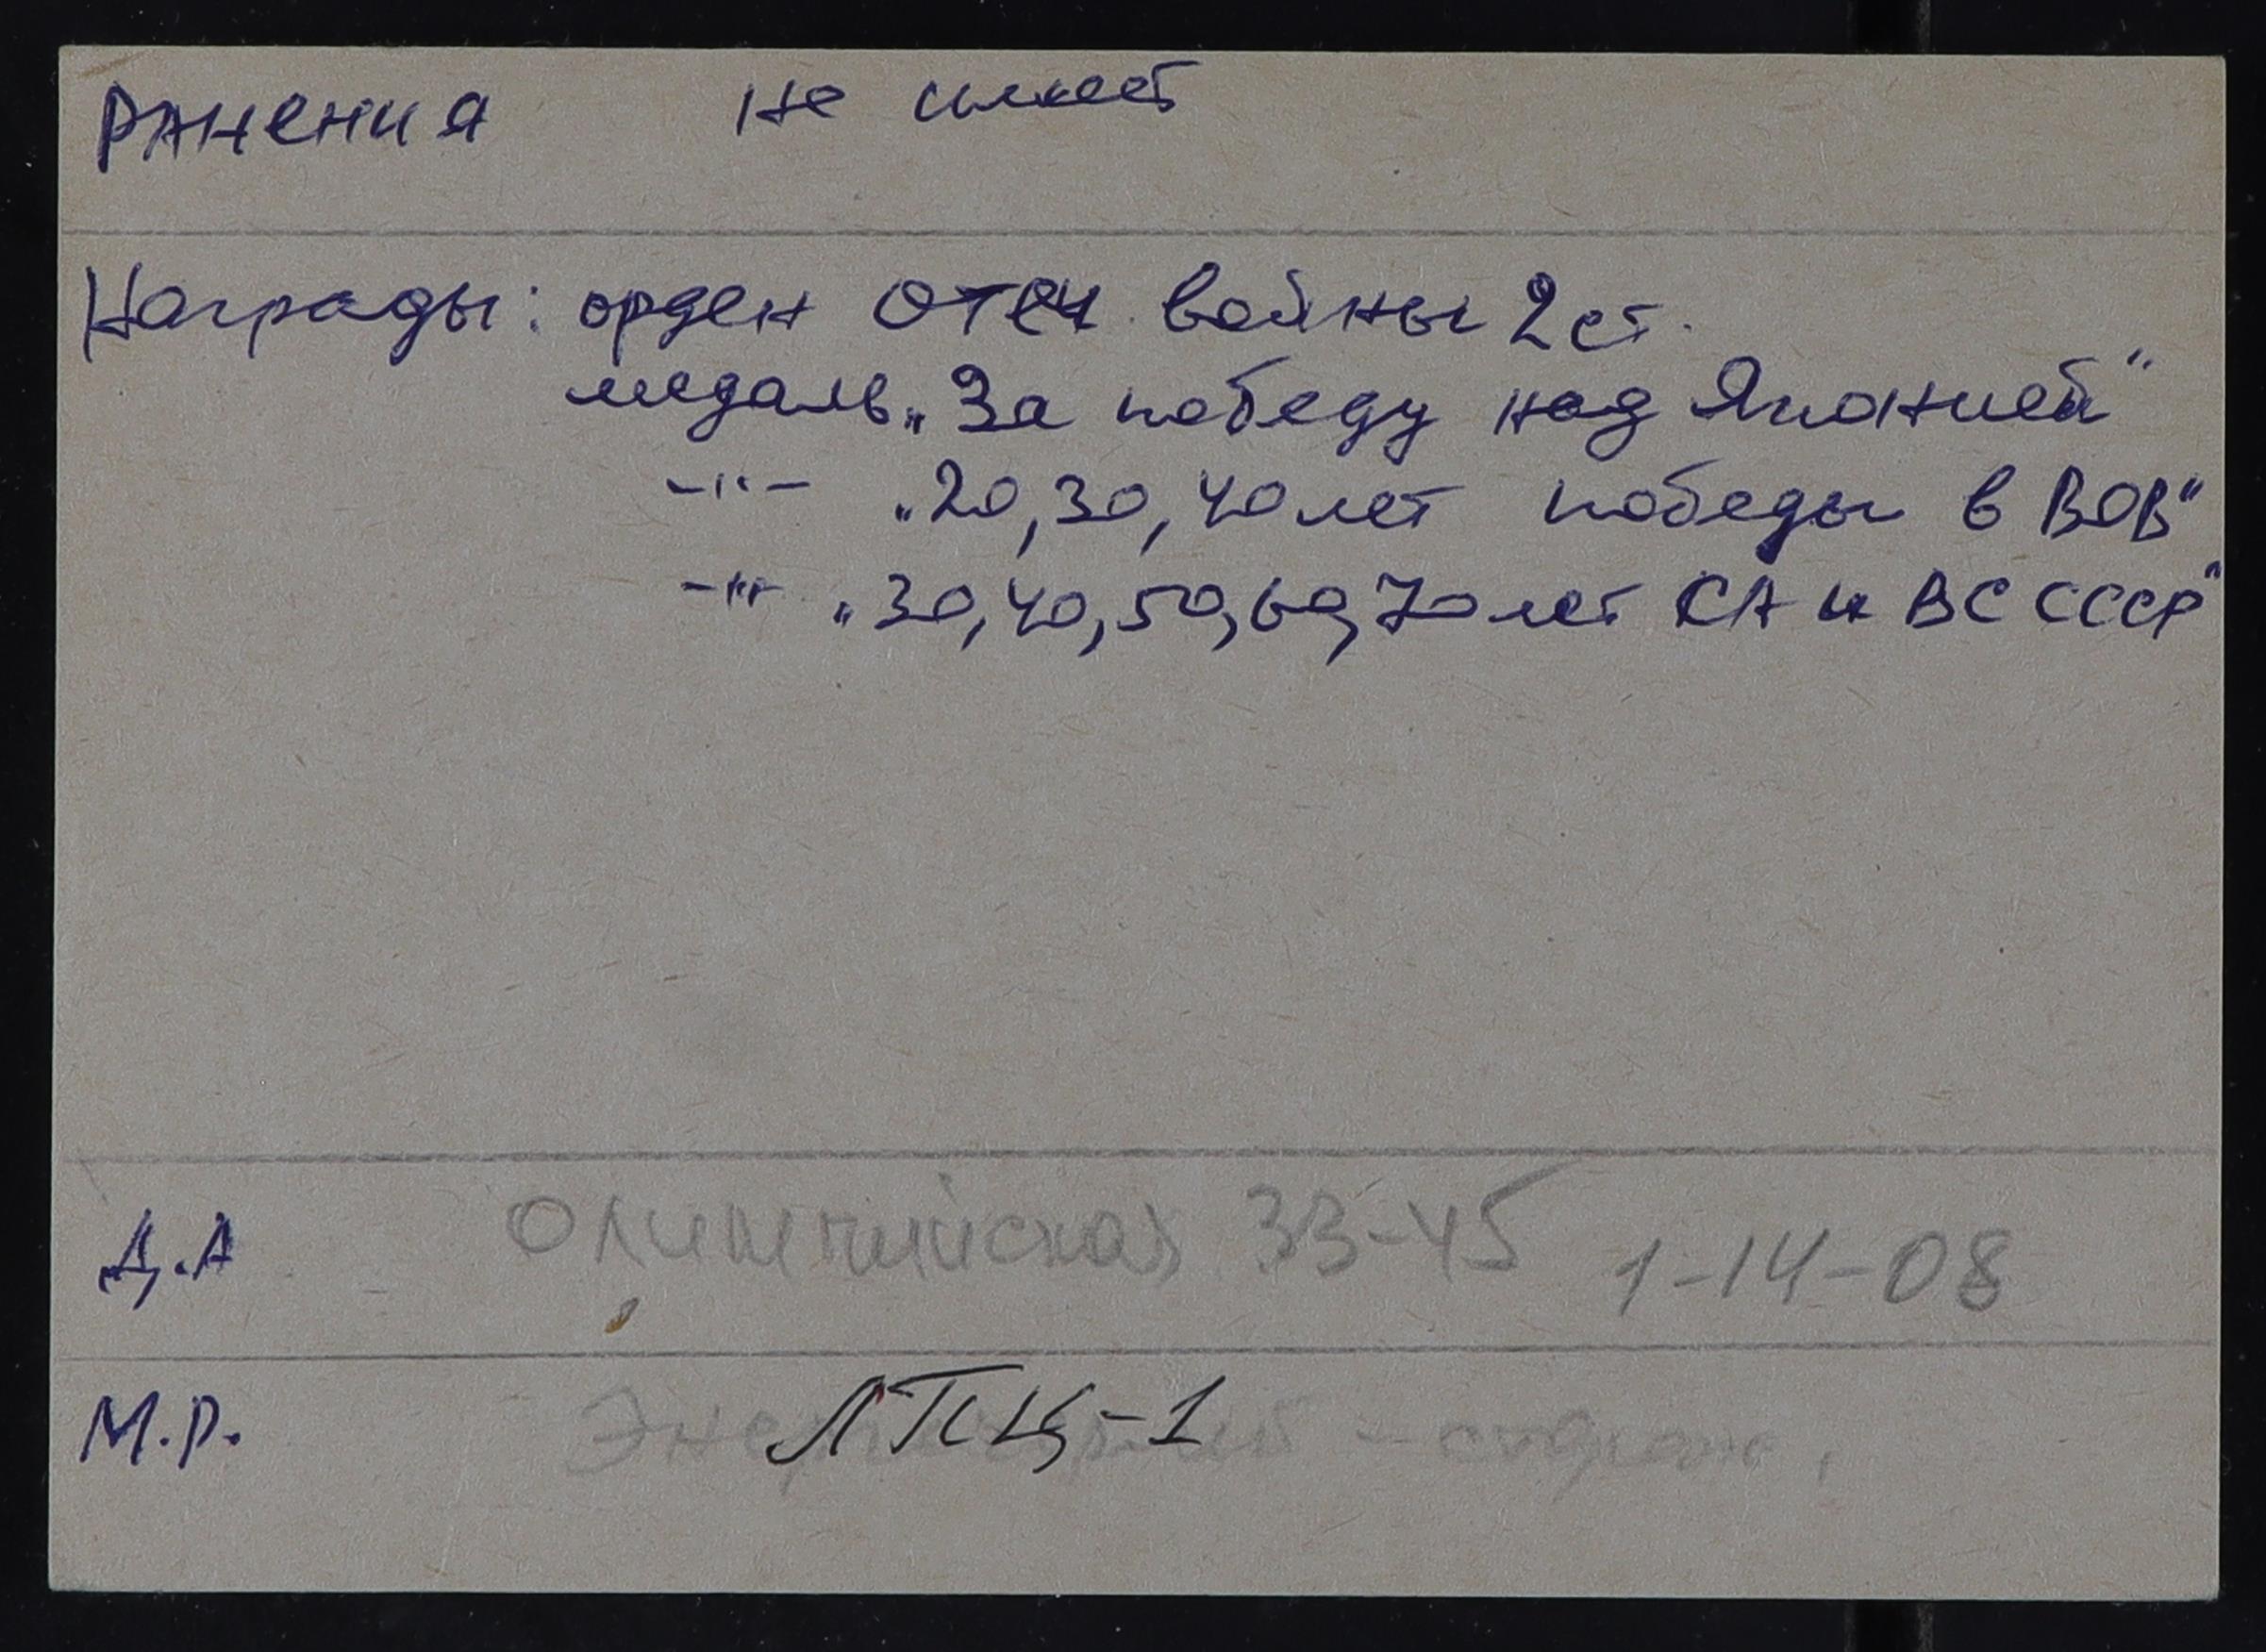 Ранения не имеет
Награды: орден Отеч. войны 2 ст.
медаль „За победу над Японией"
-"- „20, 30, 40 лет победы в ВОВ"
-"- „30, 40, 50, 60, 70 лет СА и ВС СССР"
Д.А Олимпийская 33-45 1-14-08
М.Р. ЛПЦ-1